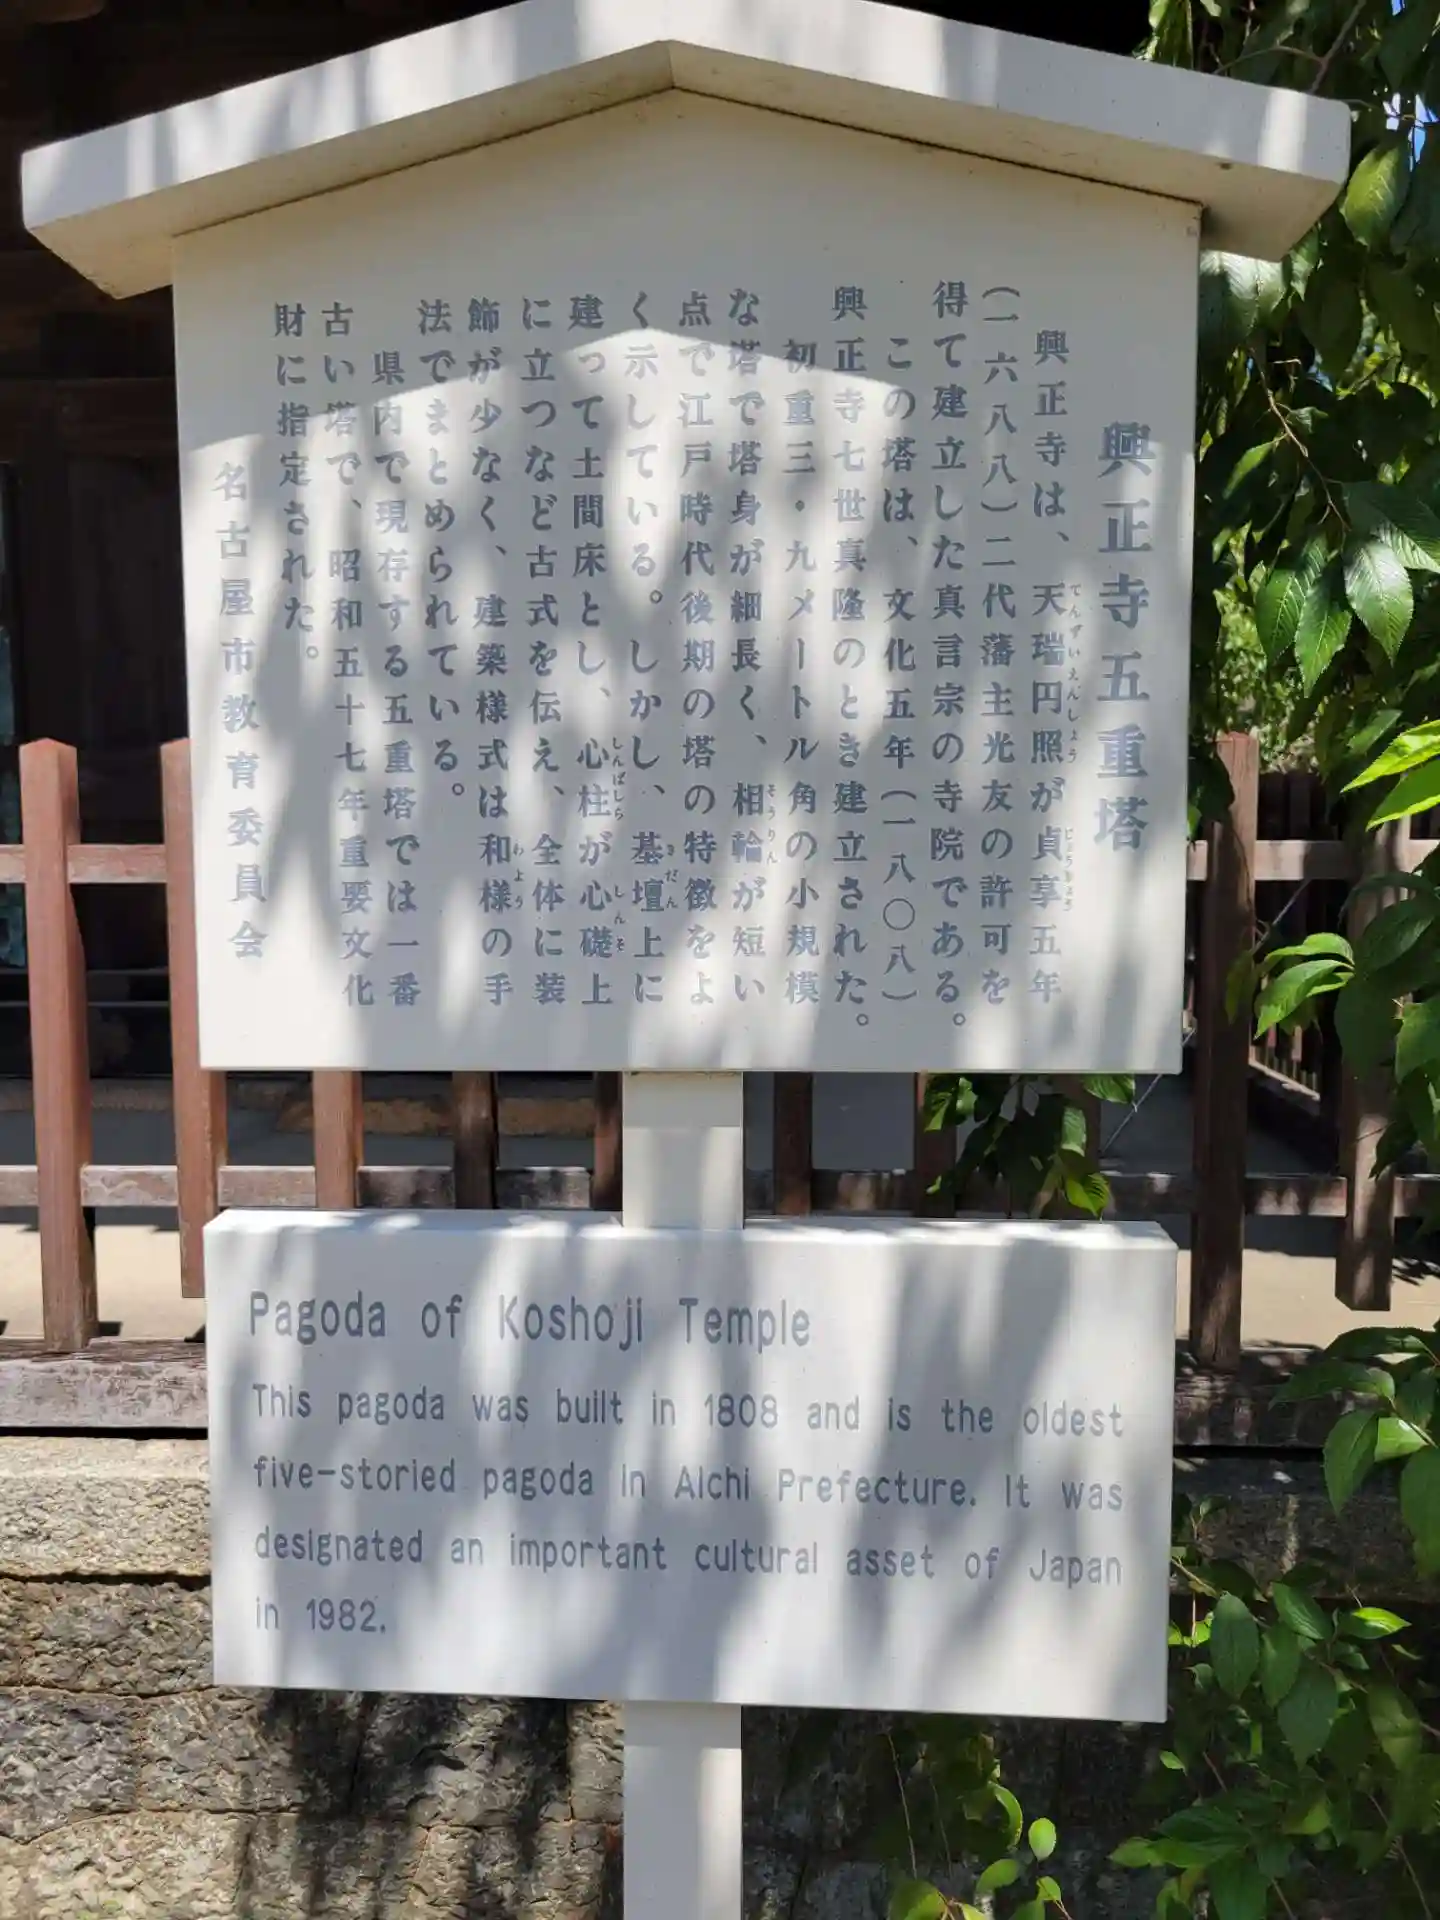 興正寺五重塔
興正寺は、天瑞円照が貞享五年
てんずいえんしょう
じょうきょう
(一六八八)二代藩主光友の許可を
得て建立した真言宗の寺院である。
この塔は、文化五年(一八〇八)
興正寺七世真隆のとき建立された。
初重三・九メートル角の小規模
な塔で塔身が細長く、相輪が短い
そうりん
点で江戸時代後期の塔の特徴をよ
く示している。しかし、基壇上に
きだん
建って土間床とし、心柱が心礎上
しんばしら
しんそ
に立つなど古式を伝え、全体に装
飾が少なく、建築様式は和様の手
わよう
法でまとめられている。
県内で現存する五重塔では一番
古い塔で、昭和五十七年重要文化
財に指定された。
名古屋市教育委員会
Pagoda of Koshoji Temple
This pagoda was built in 1808 and is the oldest
five-storied pagoda in Aichi Prefecture. It was
designated an important cultural asset of Japan
in 1982.